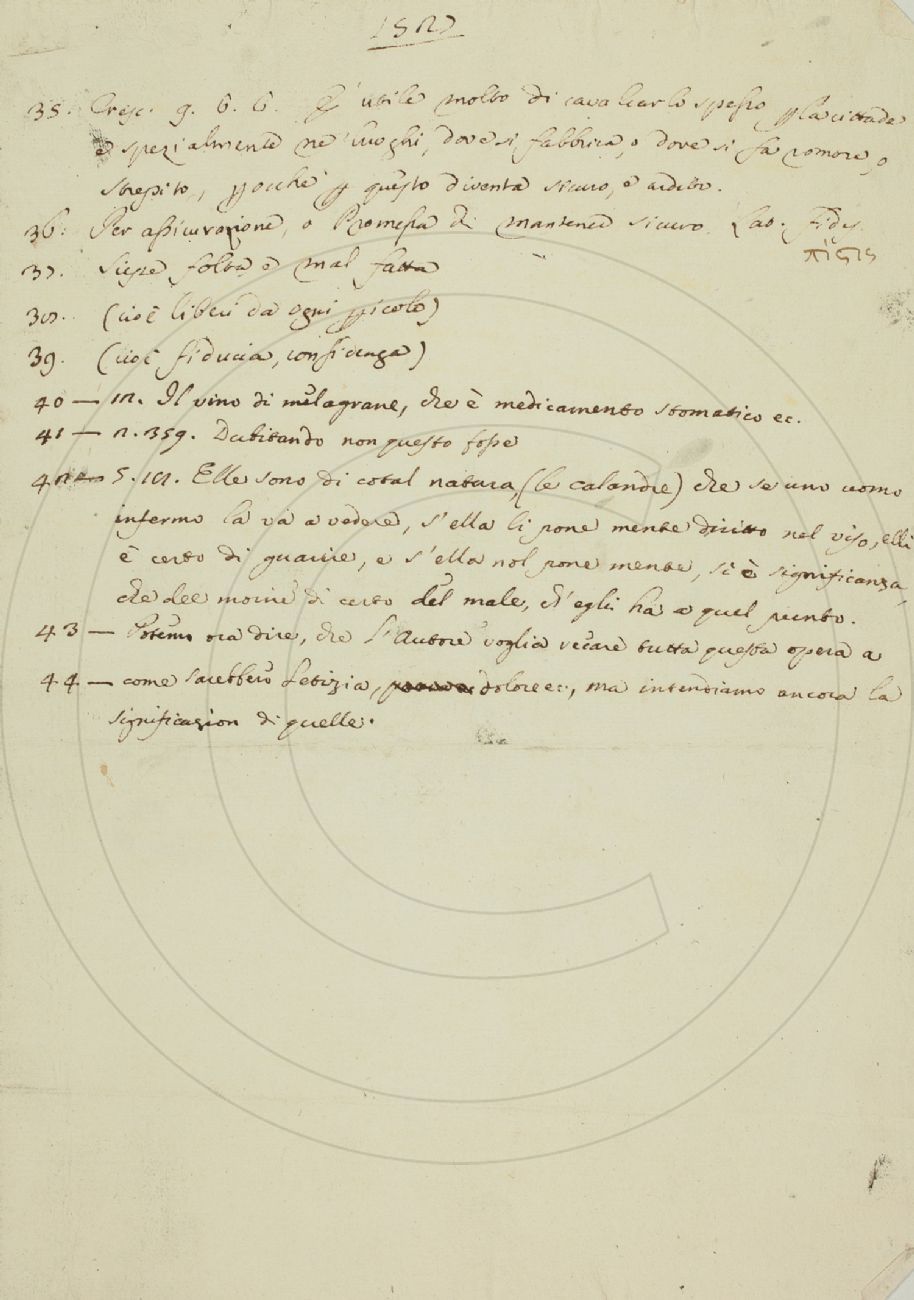 1827
35. Cresc. 9. 6. 6. E' utile molto di cavalcarlo spesso p la cittade
e spezialmente ne' luoghi, dove si fabbrica, o dove si fa romore, o
strepito, pocchè p questo diventa sicuro, e ardito.
36. Per assicurazione, o Promessa di mantener sicuro. Lat. Fides.
πίςις
37. Siepe folta e mal fatta
38. (cioè liberi da ogni picolo)
39. (cioè fiducia, confidenza)
40 — 12. Il vino di melagrane, che è medicamento stomatico ec.
41 — 2. 359. Dubitando non questo fosse
42 — 5. 12. Elle sono di cotal natura, (le calandre) che se uno uomo
infermo la va a vedere, s'ella li pone mente diritto nel viso, elli
è certo di guarire, e s'ella nol pone mente, si è significanza,
che dee morire di certo del male, ch'egli ha a quel punto.
43 — Potemo ora dire, che l'Autore voglia recare tutta questa opera a
44 — come sarebbero Letizia, dolore ec., ma intendiamo ancora la
significazion di quelle.